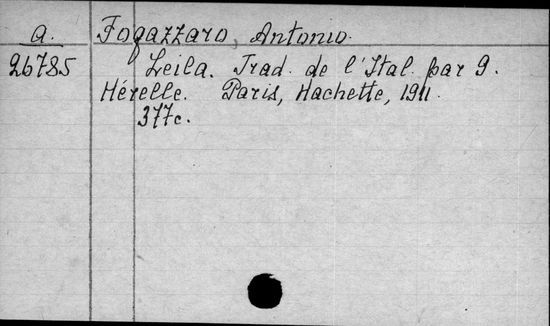 a. Fogazzaro, Antonio.
26785 Leila. Trad. de l'Ital. par G.
Hérelle. Paris, Hachette, 1911.
377c.